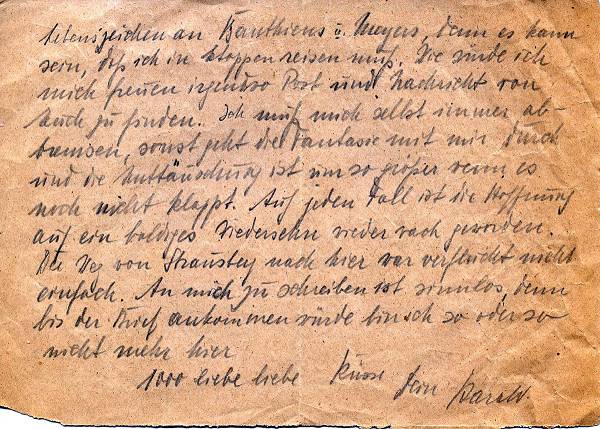 Lebenszeichen an Bauthiens u. Meyers, denn es kann
sein, daß ich in Etappen reisen muß. Wie würde ich
mich freuen irgendwo Post und Nachricht von
Euch zu finden. Ich muß mich selbst immer ab-
bremsen, sonst geht die Fantasie mit mir durch
und die Enttäuschung ist um so größer wenn es
noch nicht klappt. Auf jeden Fall ist die Hoffnung
auf ein baldiges Wiedersehn wieder wach geworden.
Der Weg von nach hier war verflucht nicht
einfach. An mich zu schreiben ist sinnlos, denn
bis der Brief ankommen würde bin ich so oder so
nicht mehr hier
1000 liebe liebe Küsse Dein